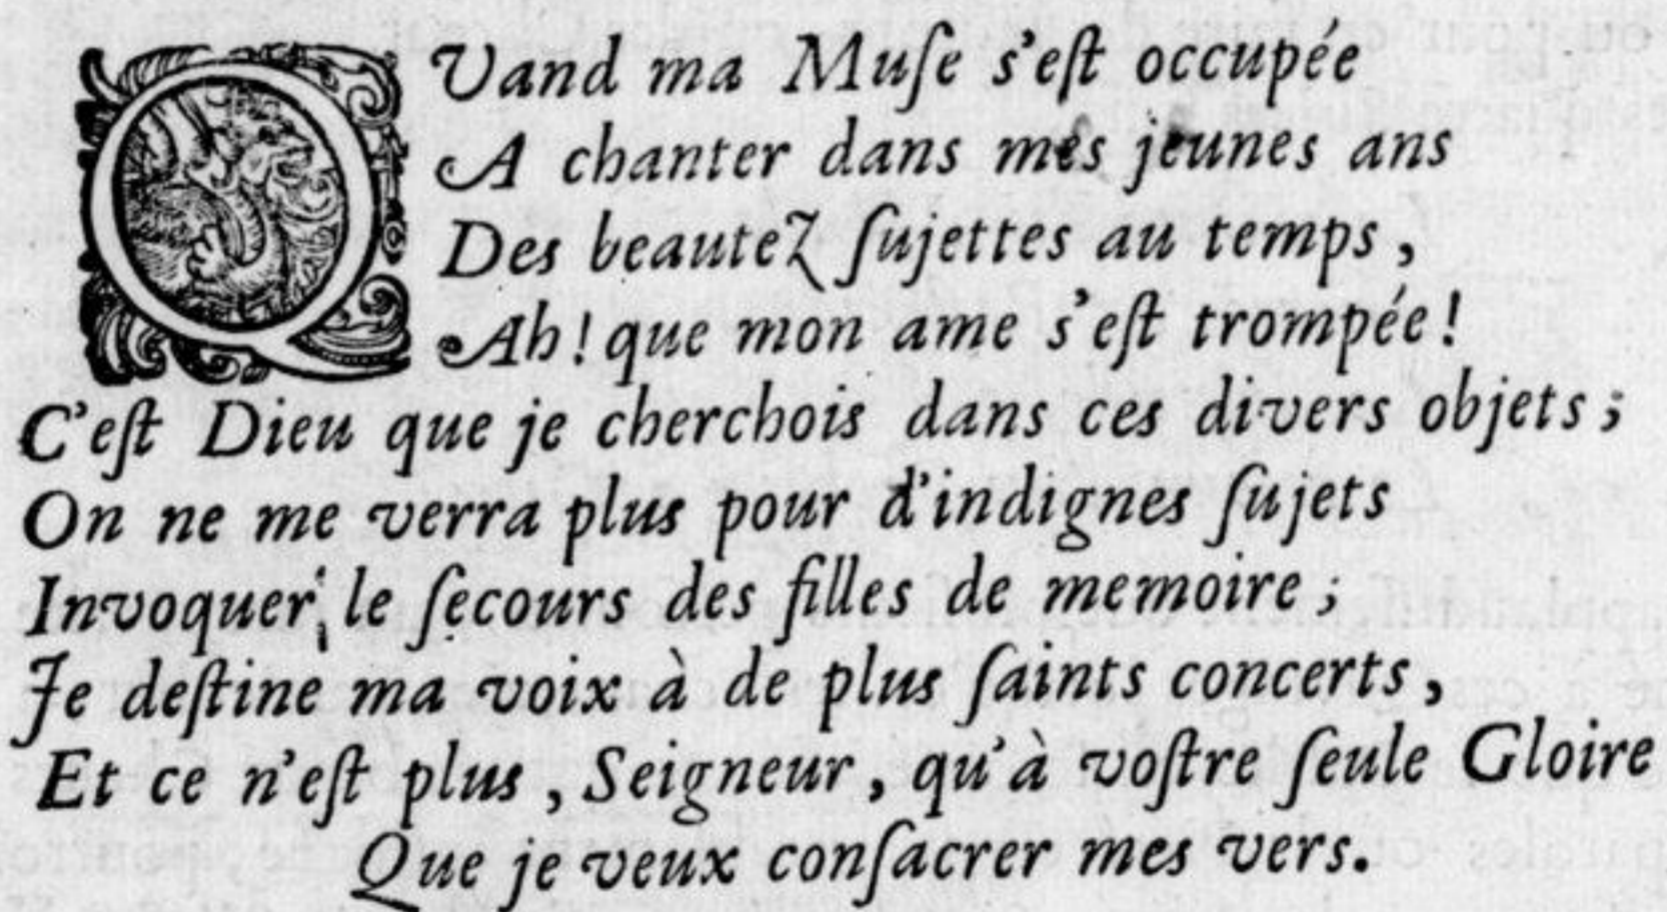 QVand ma Muſe s'eſt occupée
A chanter dans mes jeunes ans
Des beautez ſujettes au temps,
Ah! que mon ame s'eſt trompée!
C'eſt Dieu que je cherchois dans ces divers objets;
On ne me verra plus pour d'indignes ſujets
Invoquer le ſecours des filles de memoire;
Je deſtine ma voix à de plus ſaints concerts,
Et ce n'eſt plus, Seigneur, qu'à voſtre ſeule Gloire
Que je veux conſacrer mes vers.